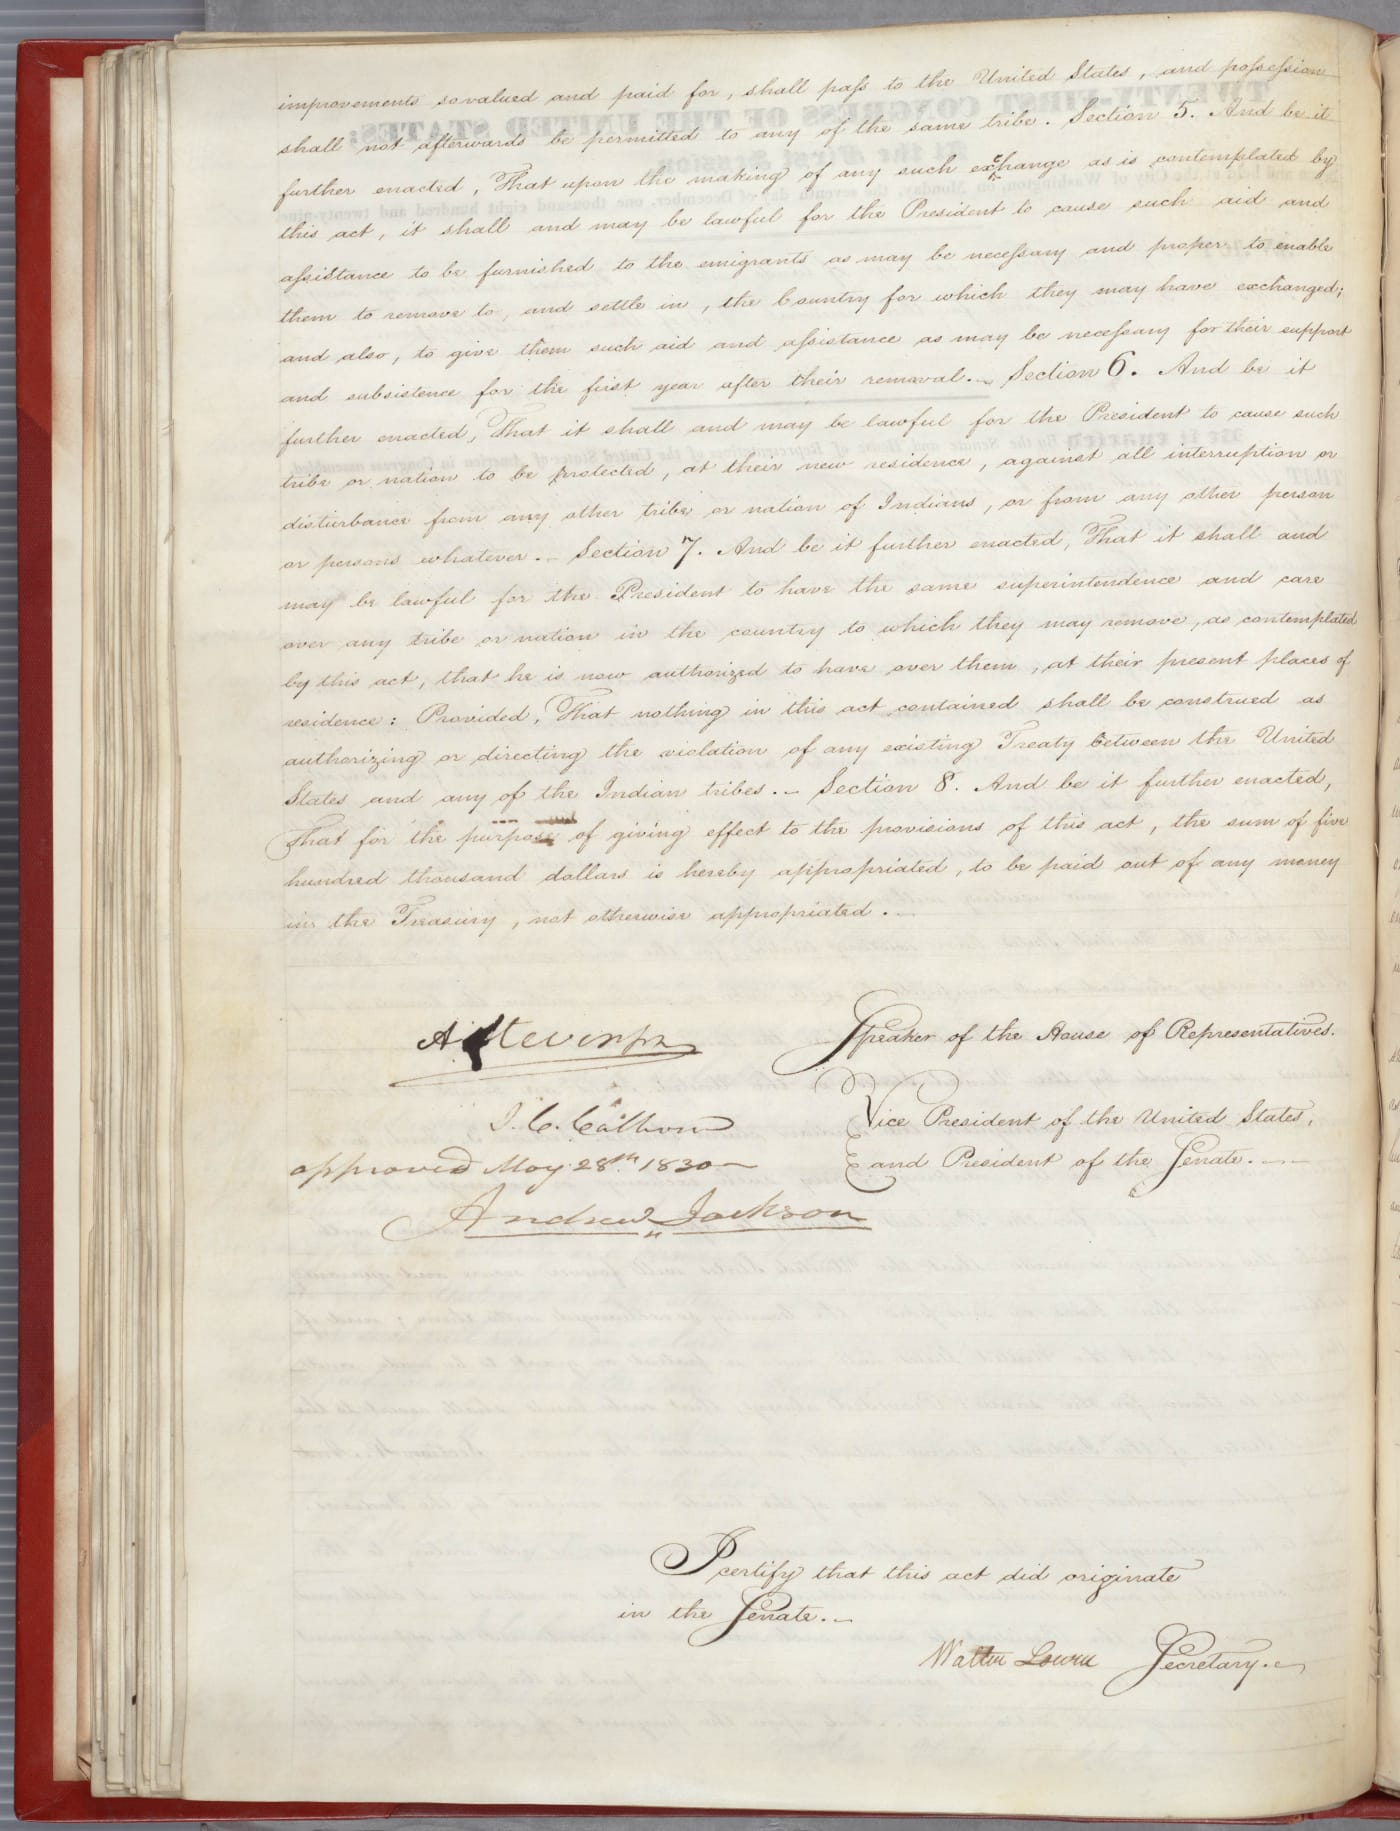 improvements so valued and paid for, shall pass to the United States, and possession
shall not afterwards be permitted to any of the same tribe. Section 5. And be it
further enacted, That upon the making of any such exchange as is contemplated by
this act, it shall and may be lawful for the President to cause such aid and
assistance to be furnished to the emigrants as may be necessary and proper to enable
them to remove to, and settle in, the Country for which they may have exchanged;
and also, to give them such aid and assistance as may be necessary for their support
and subsistence for the first year after their removal. Section 6. And be it
further enacted, That it shall and may be lawful for the President to cause such
tribe or nation to be protected, at their new residence, against all interruption or
disturbance from any other tribe or nation of Indians, or from any other person
or persons whatever. Section 7. And be it further enacted, That it shall and
may be lawful for the President to have the same superintendence and care
over any tribe or nation in the country to which they may remove, as contemplated
by this act, that he is now authorized to have over them, at their present places of
residence: Provided, That nothing in this act contained shall be construed as
authorizing or directing the violation of any existing Treaty between the United
States and any of the Indian tribes. Section 8. And be it further enacted,
That for the purpose of giving effect to the provisions of this act, the sum of five
hundred thousand dollars is hereby appropriated, to be paid out of any money
in the Treasury, not otherwise appropriated.
A Stevenson Speaker of the House of Representatives.
J. C. Calhoun Vice President of the United States,
and President of the Senate.
approved May 28th 1830
Andrew Jackson
I certify that this act did originate
in the Senate.
Walter Lowrie Secretary.